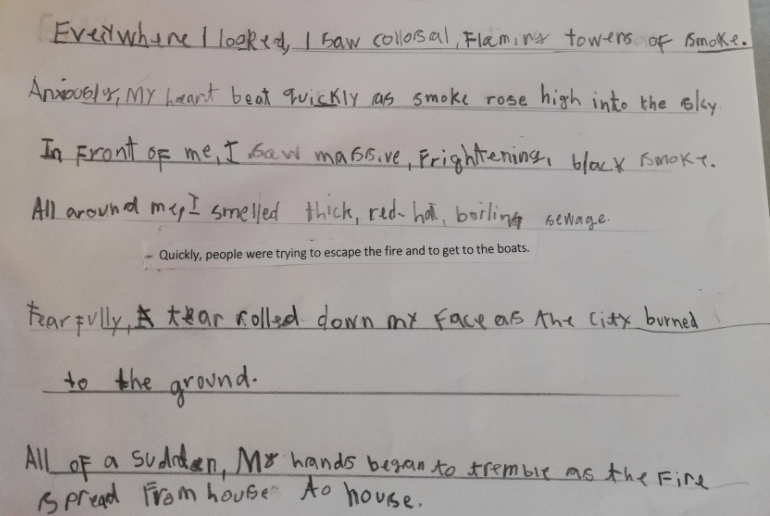 Everywhere I looked, I saw collosal, Flaming towers of smoke.
Anxiously, My heart beat quickly as smoke rose high into the sky.
In Front of me, I saw massive, Frightening, black smoke.
All around me, I smelled thick, red-hot, boiling sewage.
- Quickly, people were trying to escape the fire and to get to the boats.
Fearfully, A tear rolled down my Face as the City burned
to the ground.
All of a sudden, My hands began to tremble as the Fire
spread From house to house.